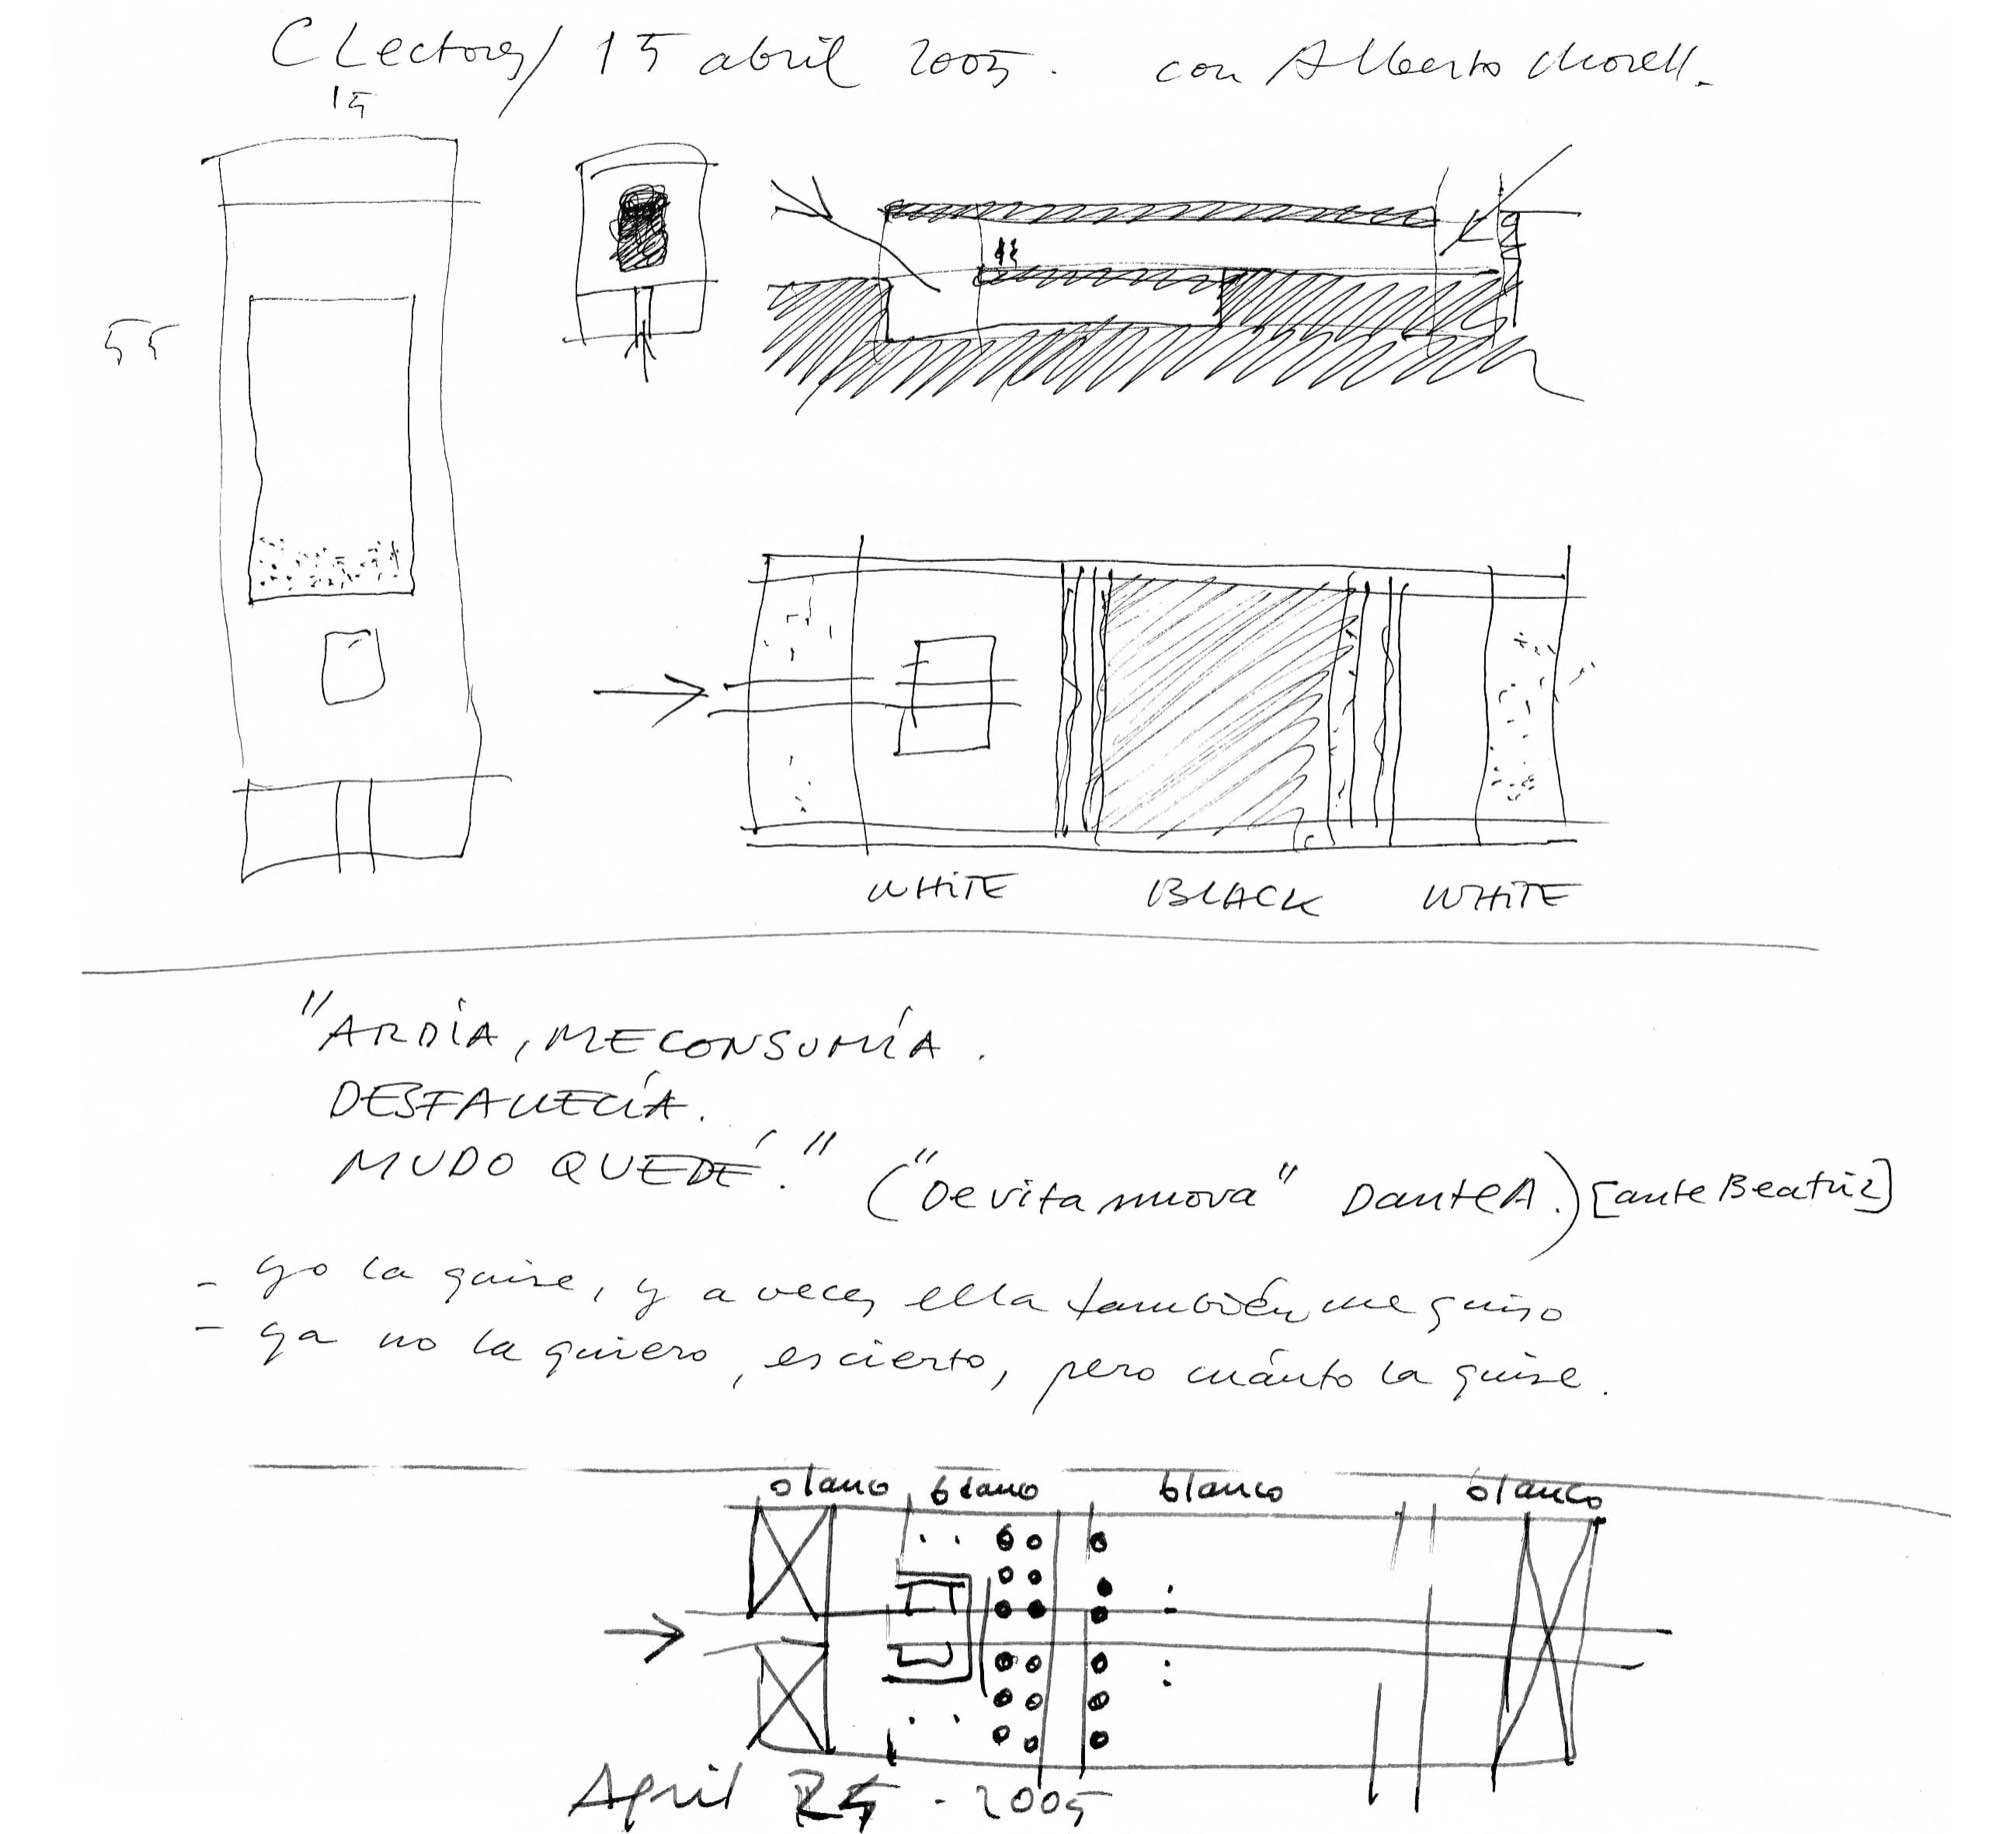 C Lectores / 15 abril 2005. con Alberto Morell.
15
55
WHITE BLACK WHITE
"ARDÍA, ME CONSUMÍA.
DESFALLECÍA.
MUDO QUEDÉ." ("De vita nuova" Dante A.) [ante Beatriz]
- yo la quise, y a veces ella también me quiso
- ya no la quiero, es cierto, pero cuánto la quise.
blanco blanco blanco blanco
April 25 - 2005